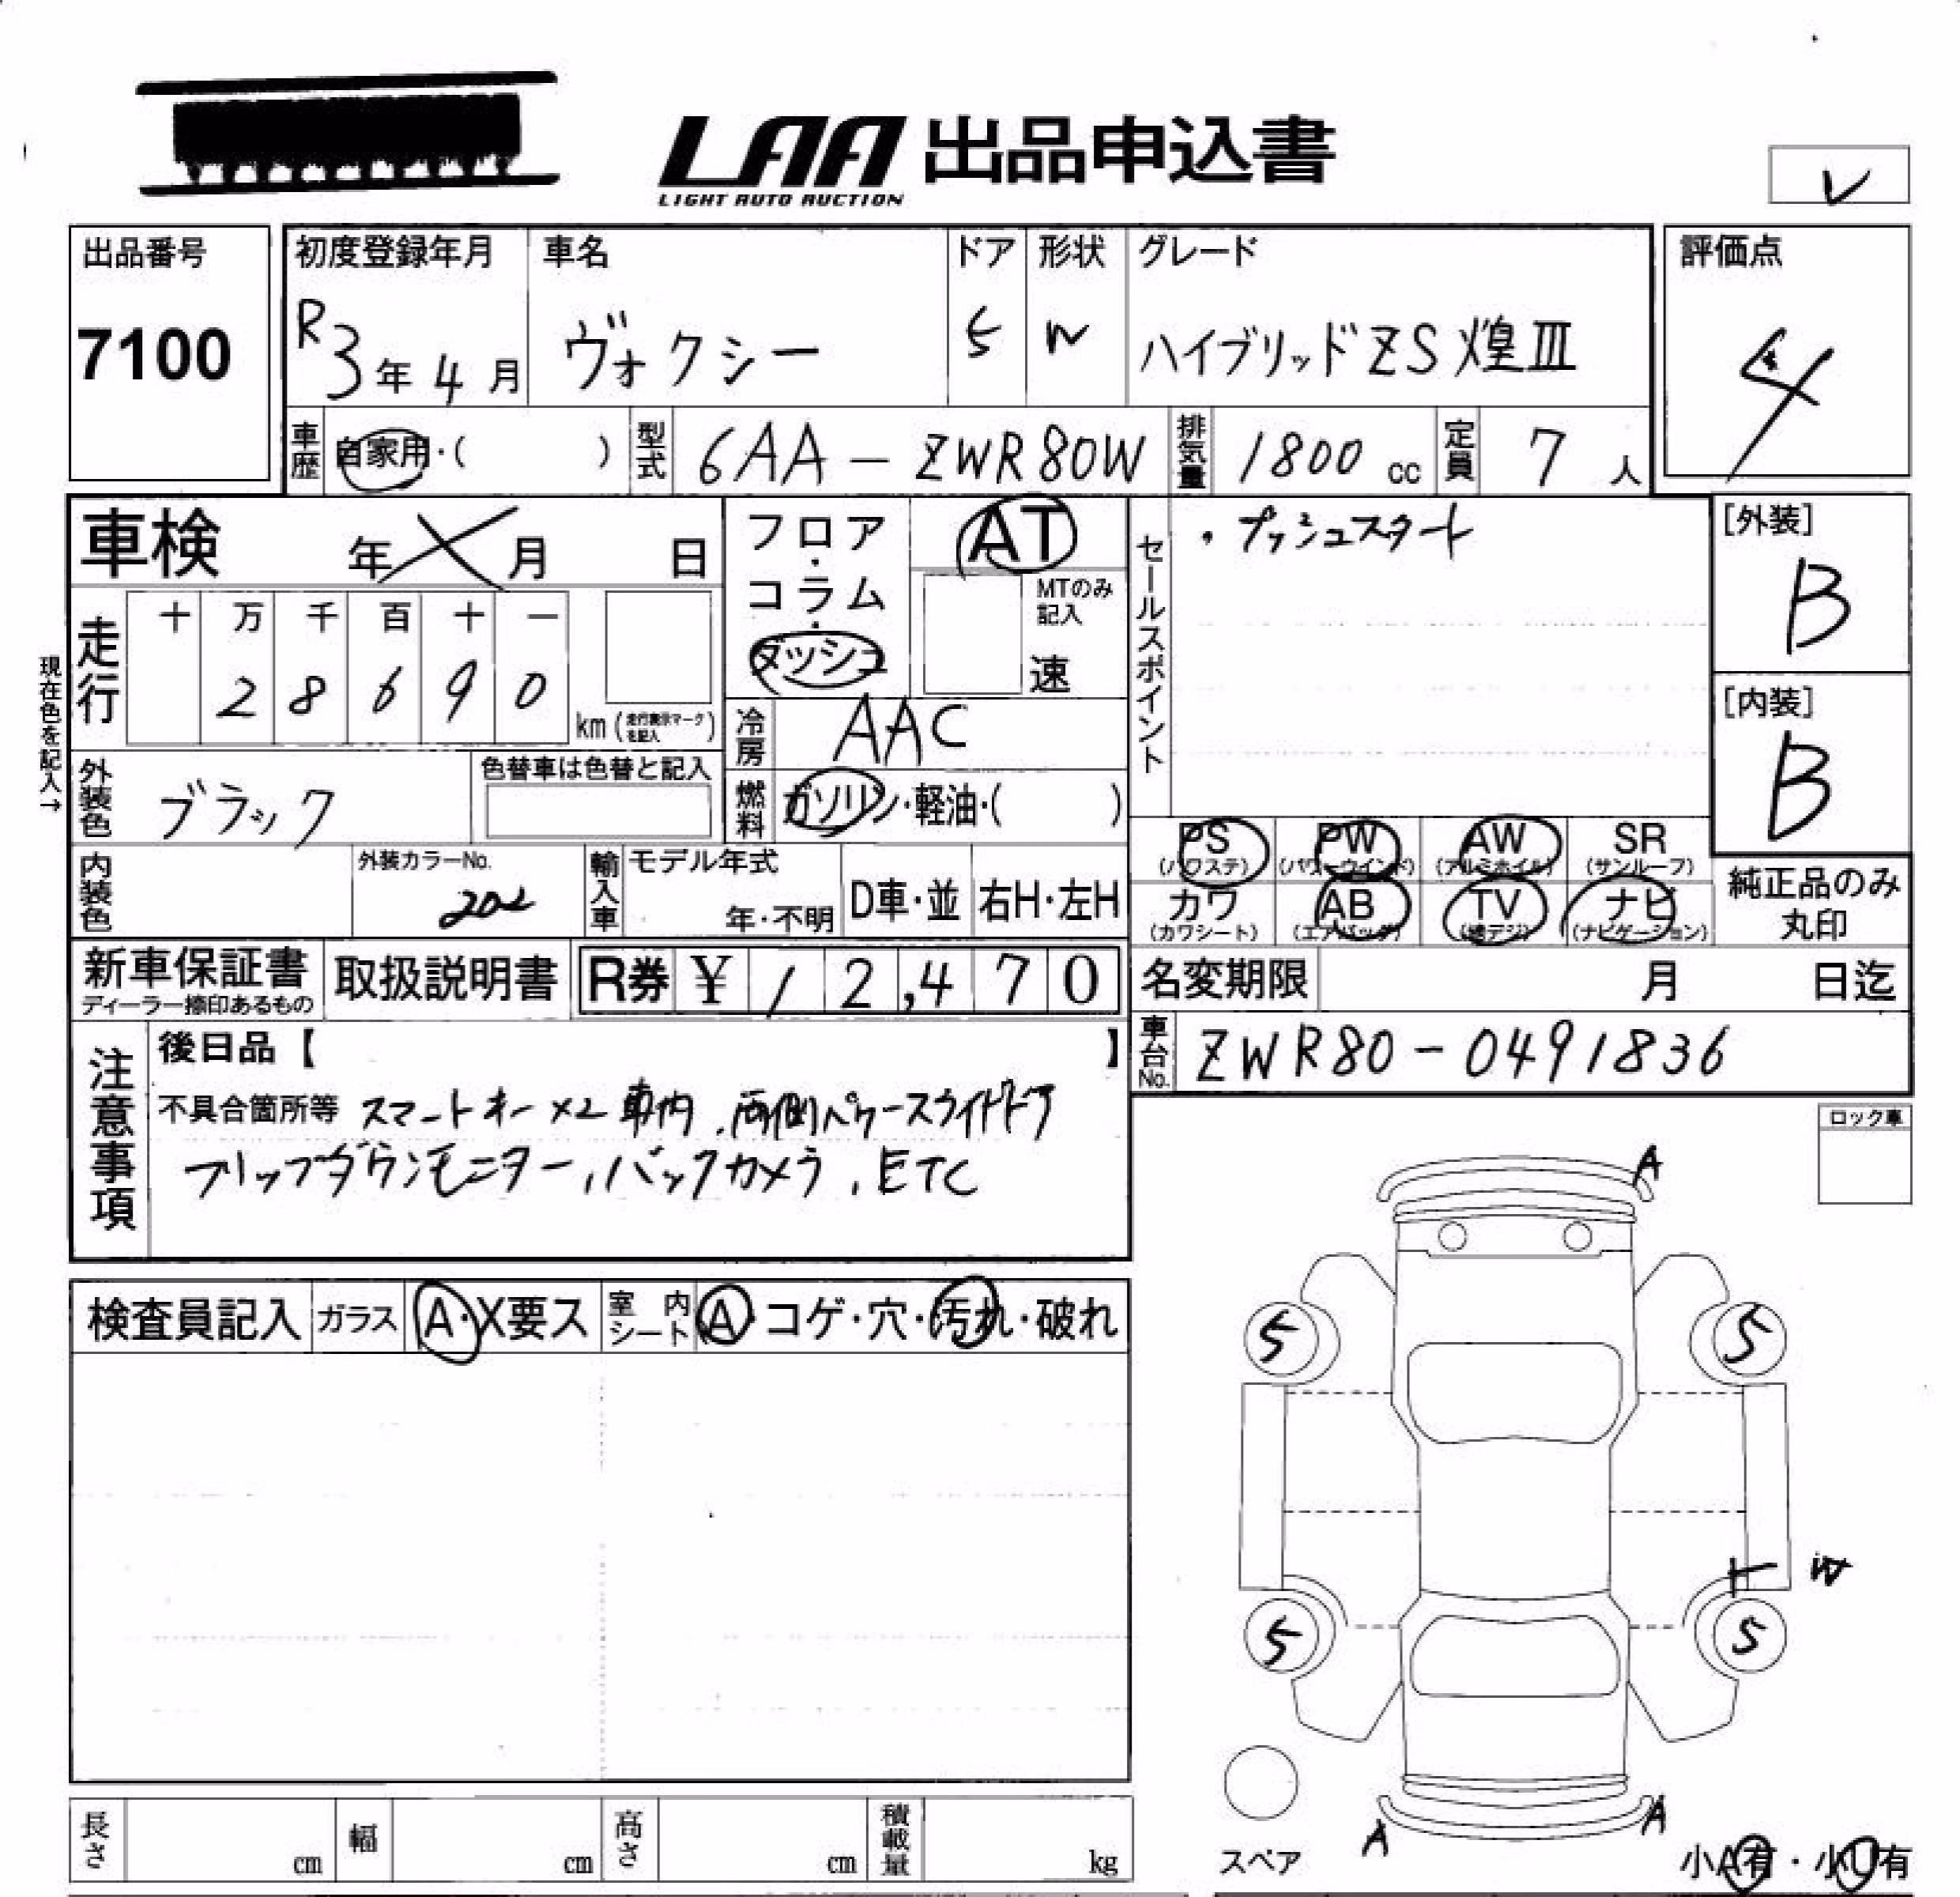 LAA 出品申込書
LIGHT AUTO AUCTION
出品番号
7100
初度登録年月
R3年4月
車名
ヴォクシー
ドア
5
形状
W
グレード
ハイブリッドZS煌III
評価点
4
車歴
自家用・( )
型式
6AA-ZWR80W
排気量
1800 cc
定員
7人
車検 年 月 日
現在色を記入→
走行
十 万 千 百 十 一
2 8 6 9 0
km (走行表示マークを記入)
フロア・コラム・ダッシュ
AT
MTのみ記入
速
冷房
AAC
燃料
ガソリン・軽油・( )
セールスポイント
・プッシュスタート
[外装]
B
[内装]
B
外装色
ブラック
色替車は色替と記入
内装色
外装カラーNo.
202
輸入車
モデル年式
年・不明
D車・並
右H・左H
PS (パワステ)
PW (パワーウインド)
AW (アルミホイル)
SR (サンルーフ)
カワ (カワシート)
AB (エアバッグ)
TV (地デジ)
ナビ (ナビゲーション)
純正品のみ丸印
新車保証書
ディーラー捺印あるもの
取扱説明書
R券 ¥ 12,470
名変期限 月 日迄
車台No.
ZWR80-0491836
注意事項
後日品【 】
不具合箇所等 スマートキー×2 車内、両側パワースライドドア
フリップダウンモニター、バックカメラ、ETC
ロック車
検査員記入
ガラス
A・X要ス
室内シート
A・コゲ・穴・汚れ・破れ
A
5 5
W
5 5
A A
スペア
小A有・小U有
長さ cm
幅 cm
高さ cm
積載量 kg